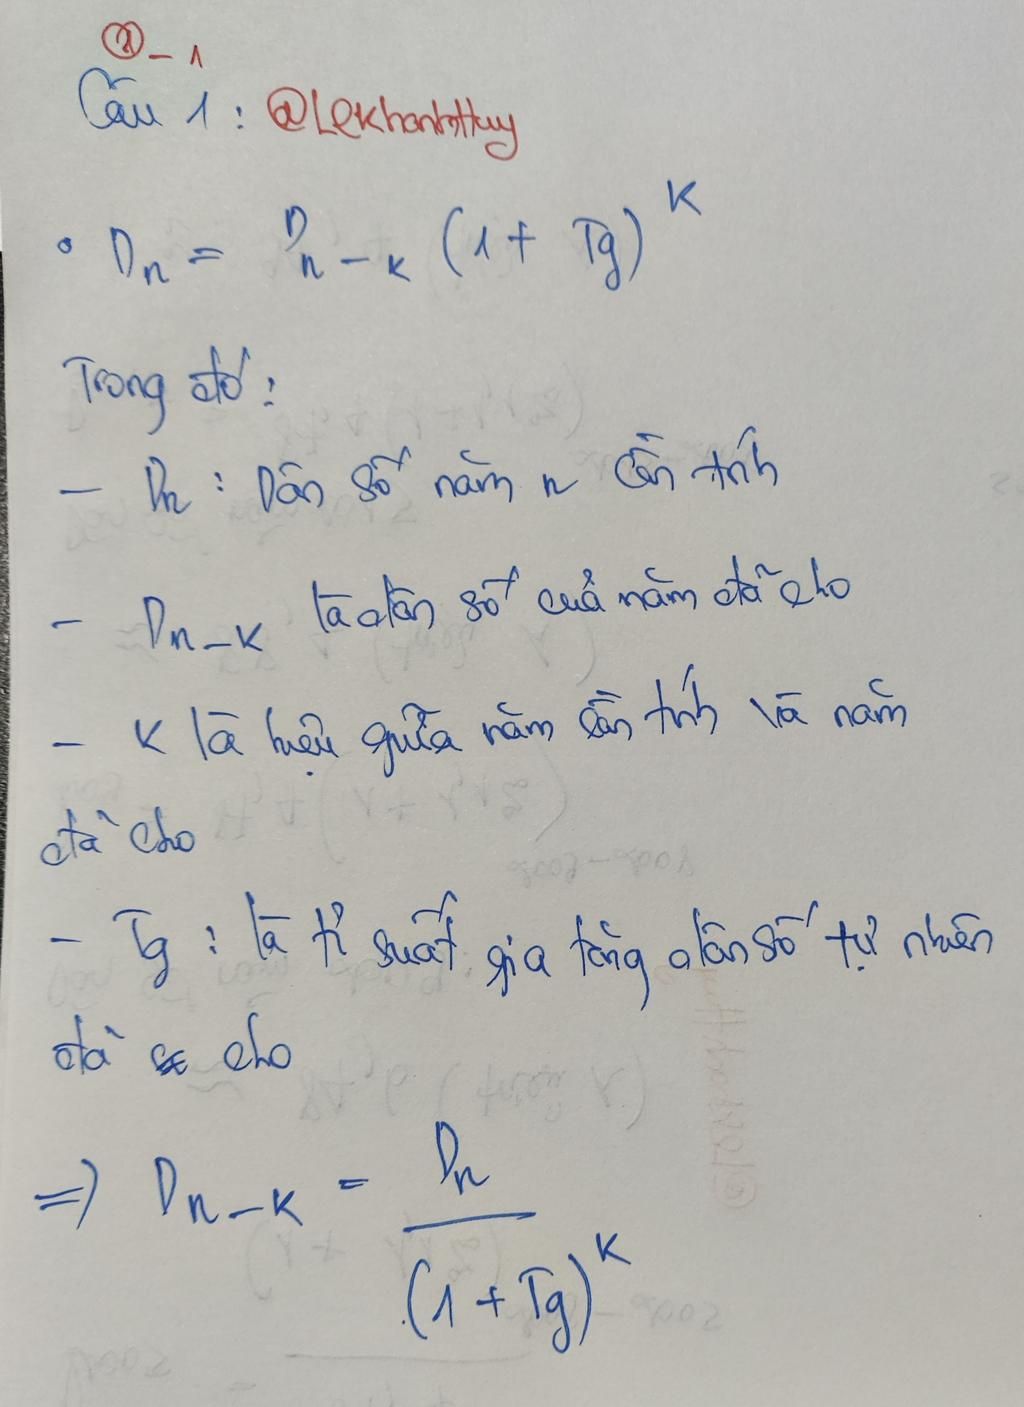 ① - 1
Câu 1 : @LeKhanhHuy
• Dn = Dn-K (1 + Tg)^K
Trong đó :
- Dn : Dân số năm n cần tính
- Dn-K là dân số của năm đã cho
- K là hiệu giữa năm cần tính và năm
đã cho
- Tg : là tỉ suất gia tăng dân số tự nhiên
đã cho
=> Dn-K = Dn / (1 + Tg)^K